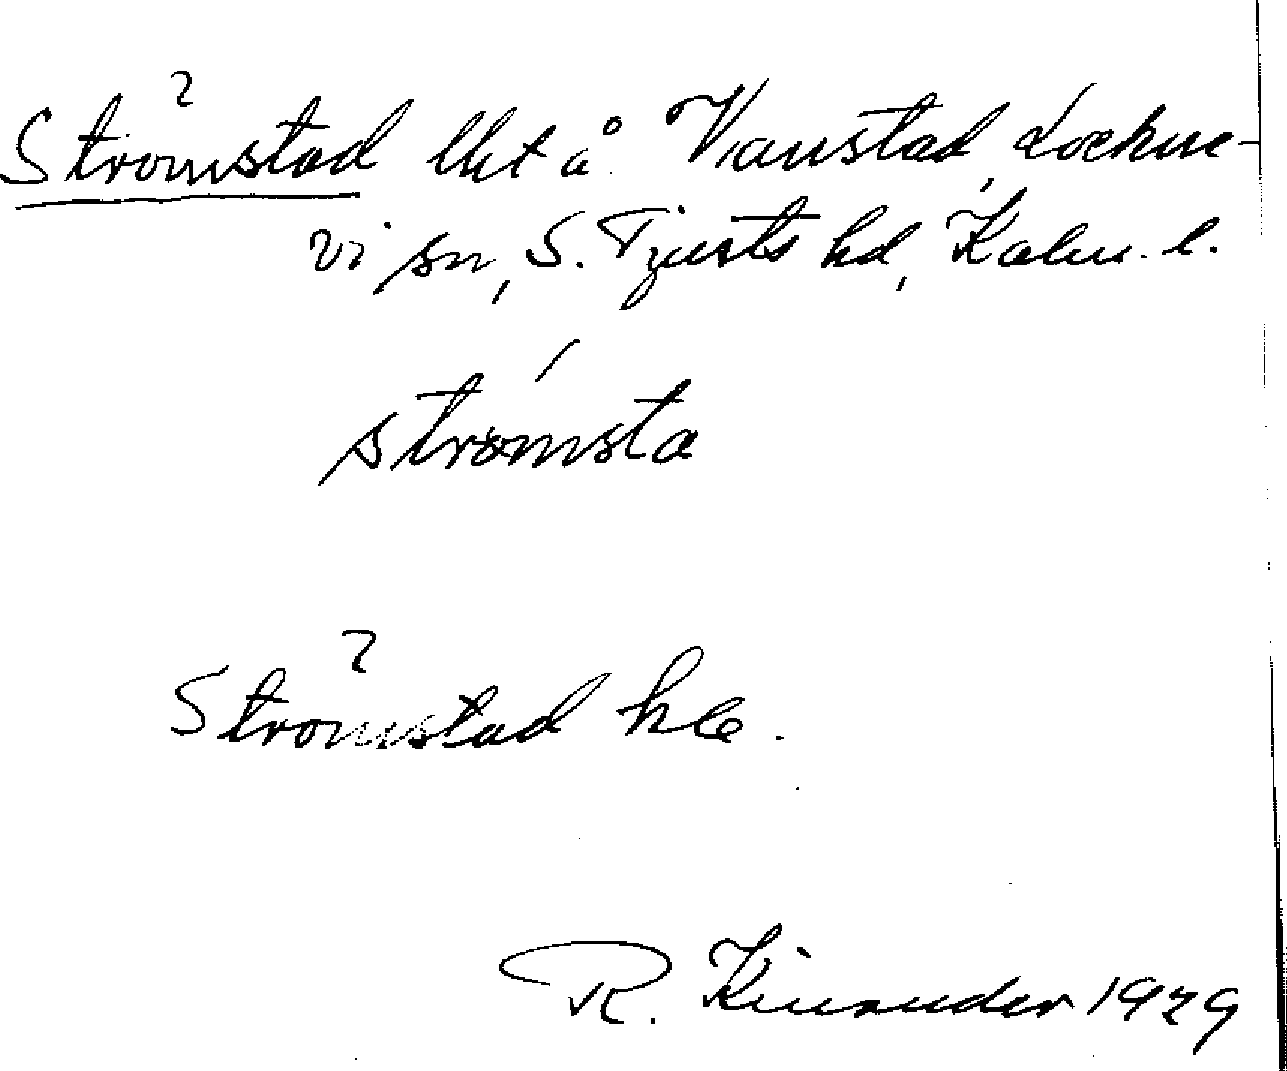 Strömstad lht å Vanstad, Lockne-
vi sn, S. Tjusts hd, Kalm. l.
strömsta
Strömstad hle.
R. Kinander 1929